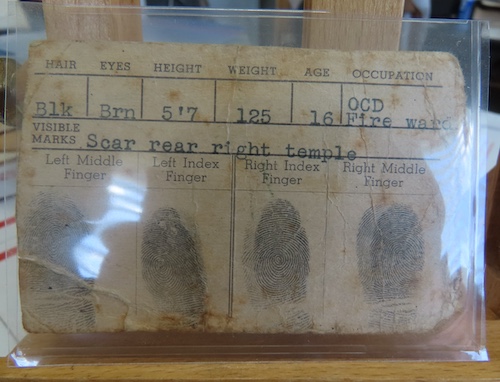 HAIR EYES HEIGHT WEIGHT AGE OCCUPATION
OCD
Blk Brn 5'7 125 16 Fire ward
VISIBLE
MARKS Scar rear right temple
Left Middle Left Index Right Index Right Middle
Finger Finger Finger Finger